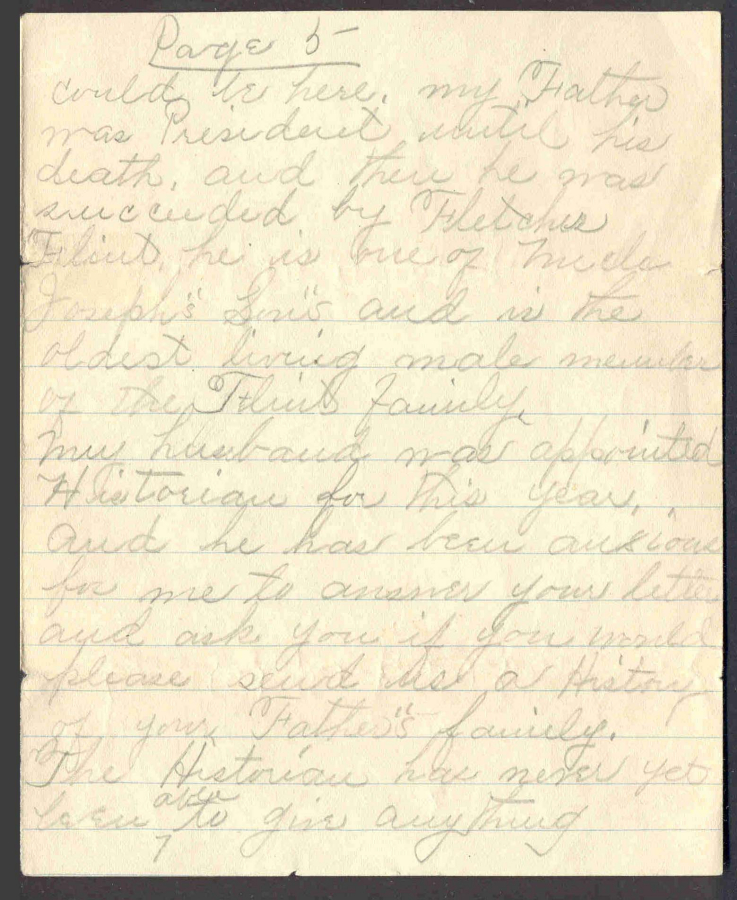 Page 5
could be here. my Father
was President until his
death, and then he was
succeeded by Fletcher
Flint, he is one of Uncle
Joseph's Son's and is the
oldest living male member
of the Flint family.
My husband was appointed
Historian for this year,
and he has been anxious
for me to answer your letter
and ask you if you would
please send us a History
of your Father's family.
The Historian has never yet
able
been to give anything